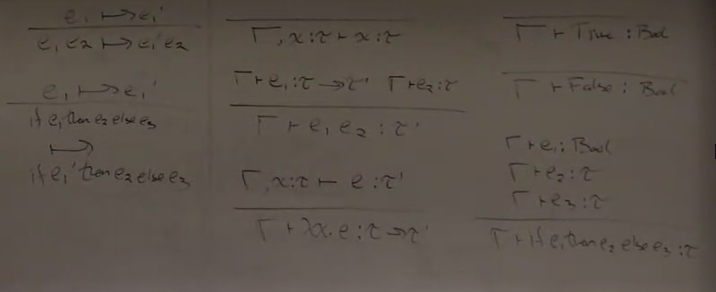 e₁ ↦ e₁'
e₁ e₂ ↦ e₁' e₂
e₁ ↦ e₁'
if e₁ then e₂ else e₃
↦
if e₁' then e₂ else e₃
Γ, x:τ ⊢ x:τ
Γ ⊢ e₁:τ → τ' Γ ⊢ e₂:τ
Γ ⊢ e₁ e₂ : τ'
Γ, x:τ ⊢ e:τ'
Γ ⊢ λx.e : τ → τ'
Γ ⊢ True : Bool
Γ ⊢ False : Bool
Γ ⊢ e₁: Bool
Γ ⊢ e₂: τ
Γ ⊢ e₃: τ
Γ ⊢ if e₁ then e₂ else e₃ : τ